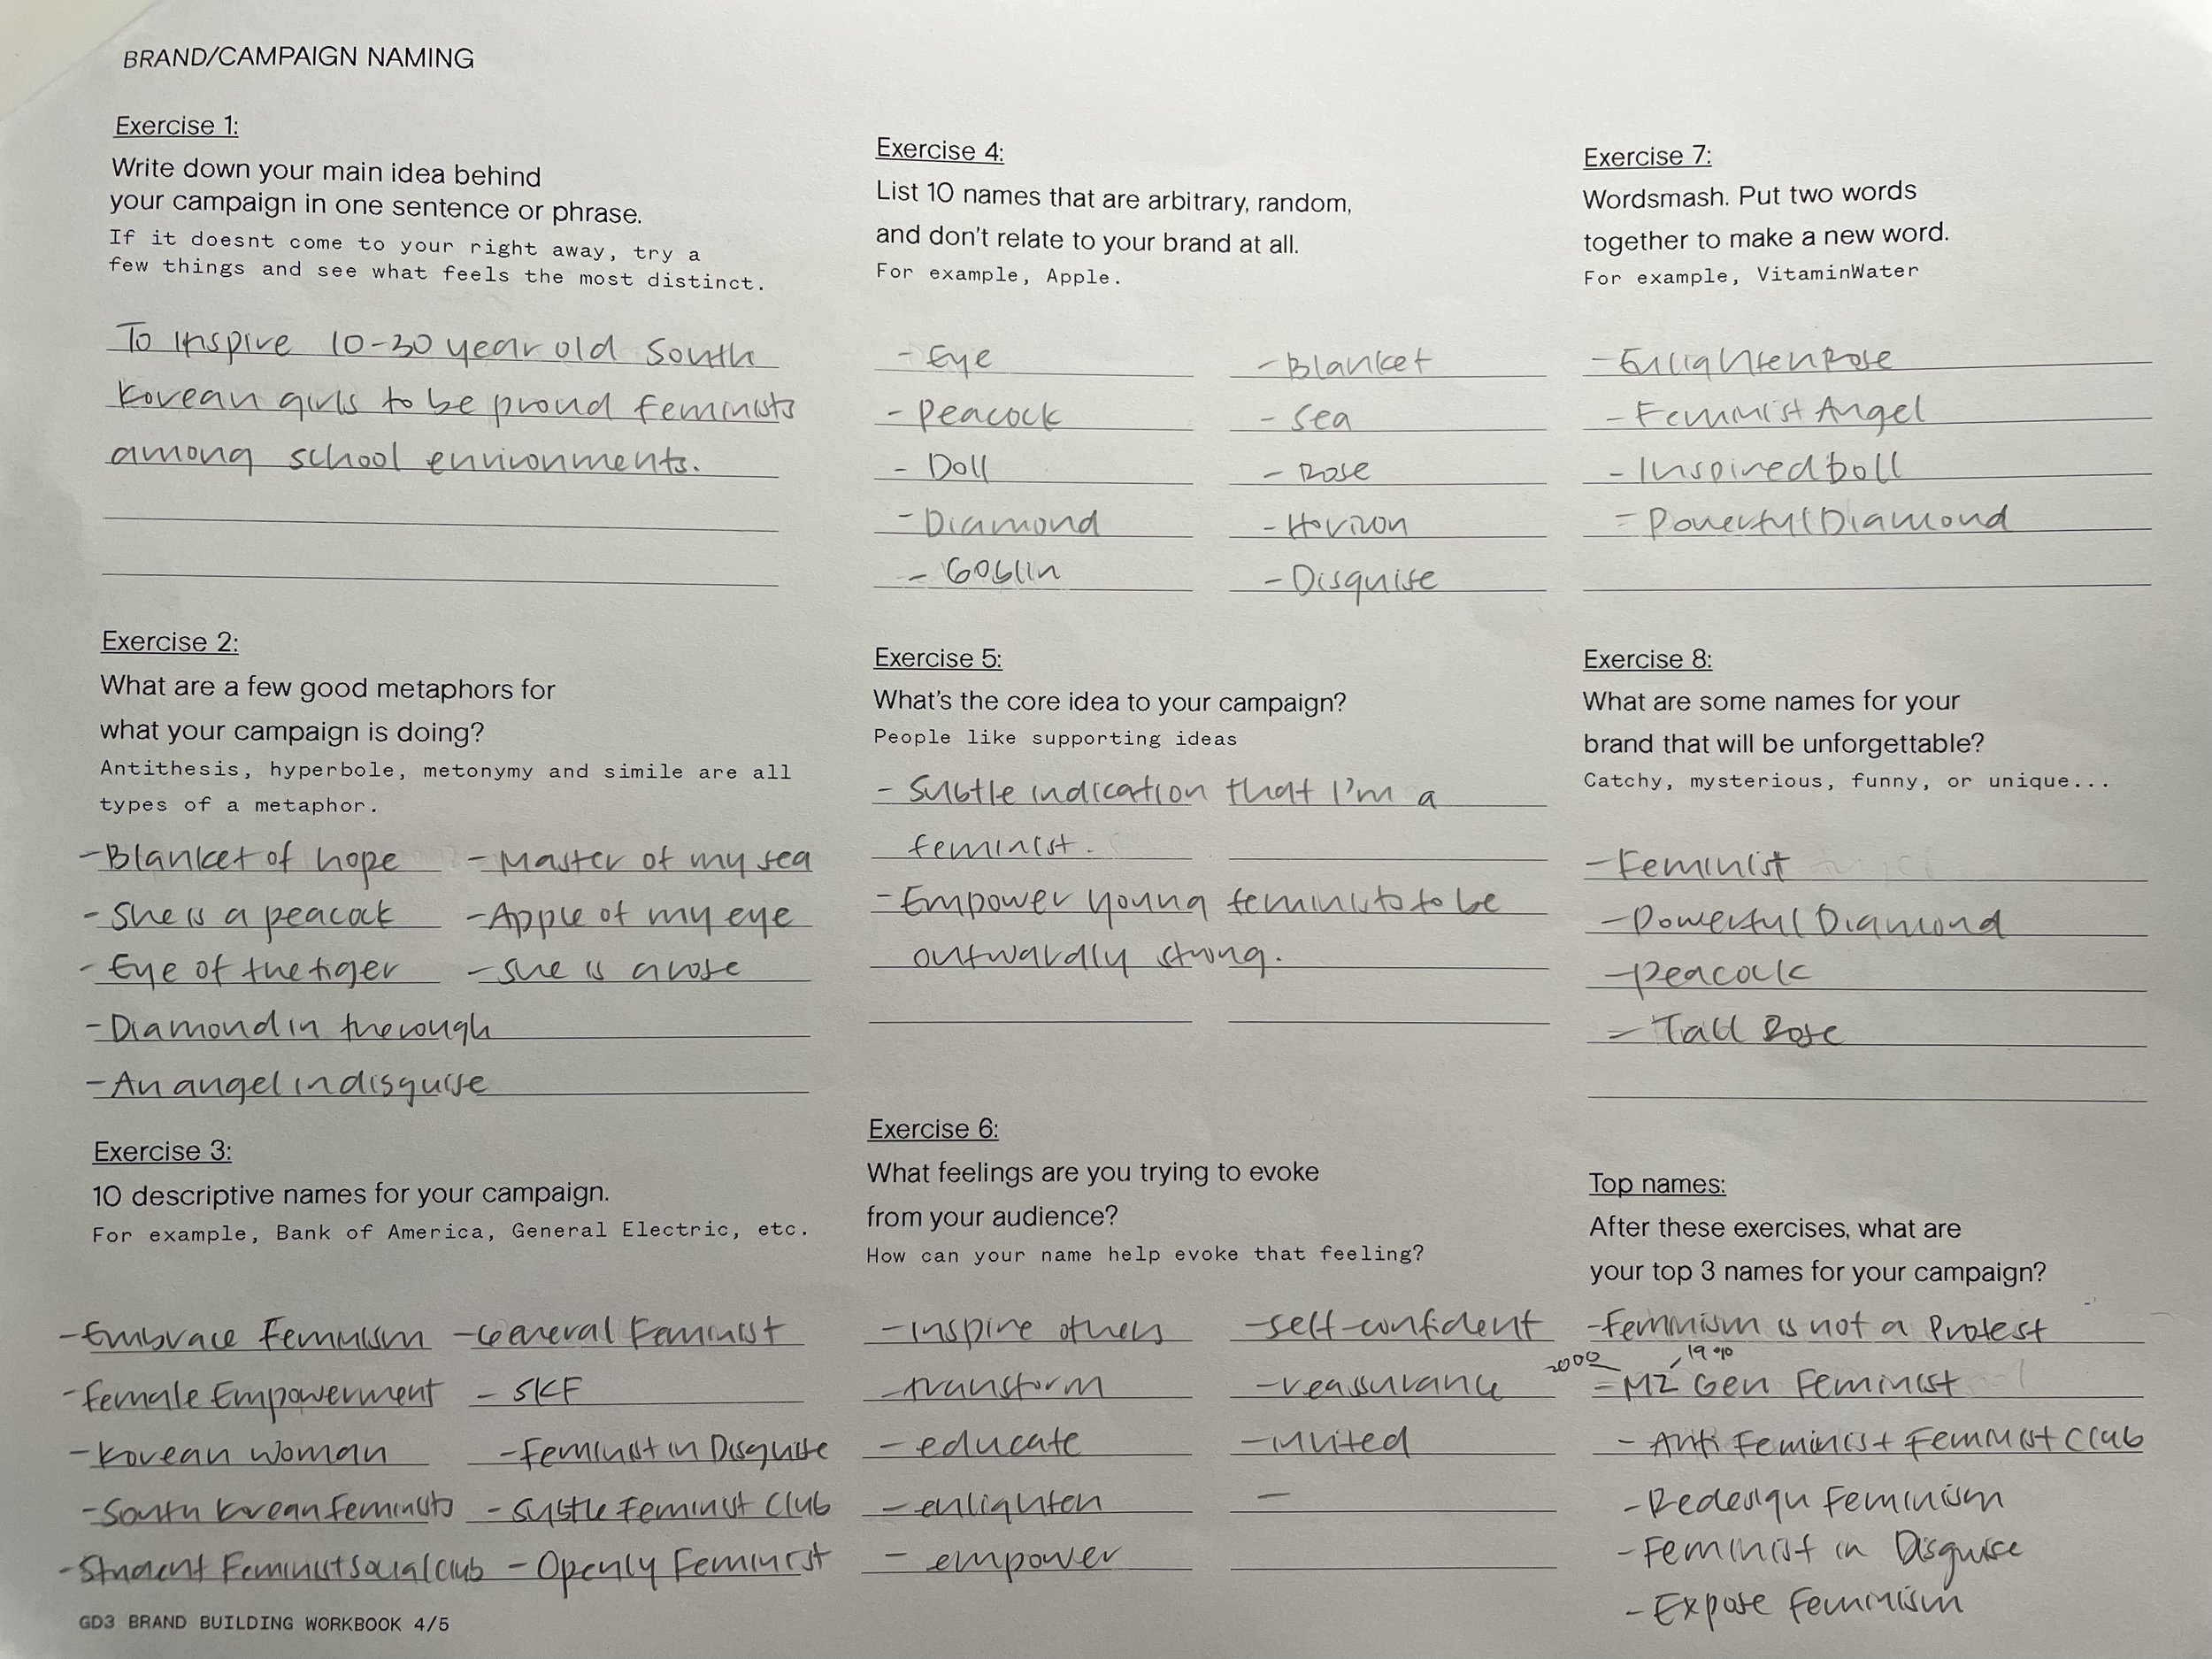 BRAND/CAMPAIGN NAMING
Exercise 1:
Write down your main idea behind
your campaign in one sentence or phrase.
If it doesnt come to your right away, try a
few things and see what feels the most distinct.
To inspire 10-30 year old South
Korean girls to be proud feminists
among school environments.
Exercise 2:
What are a few good metaphors for
what your campaign is doing?
Antithesis, hyperbole, metonymy and simile are all
types of a metaphor.
- Blanket of hope - Master of my sea
- She is a peacock - Apple of my eye
- Eye of the tiger - she is a rose
- Diamond in the rough
- An angel in disguise
Exercise 3:
10 descriptive names for your campaign.
For example, Bank of America, General Electric, etc.
- Embrace Feminism - General Feminist
- Female Empowerment - SKF
- Korean woman - Feminist in Disguise
- South Korean feminists - Subtle Feminist Club
- Student Feminist social club - Openly Feminist
GD3 BRAND BUILDING WORKBOOK 4/5
Exercise 4:
List 10 names that are arbitrary, random,
and don't relate to your brand at all.
For example, Apple.
- Eye - Blanket
- Peacock - Sea
- Doll - Rose
- Diamond - Horizon
- Goblin - Disguise
Exercise 5:
What's the core idea to your campaign?
People like supporting ideas
- Subtle indication that I'm a
feminist.
- Empower young feminists to be
outwardly strong.
Exercise 6:
What feelings are you trying to evoke
from your audience?
How can your name help evoke that feeling?
- inspire others - self-confident
- transform - reassurance
- educate - united
- enlighten -
- empower
Exercise 7:
Wordsmash. Put two words
together to make a new word.
For example, VitaminWater
- EnlightenRose
- FeministAngel
- InspiredDoll
- PowerfulDiamond
Exercise 8:
What are some names for your
brand that will be unforgettable?
Catchy, mysterious, funny, or unique...
- Feminist
- Powerful Diamond
- Peacock
- Tall Rose
Top names:
After these exercises, what are
your top 3 names for your campaign?
- Feminism is not a Protest
2000 19%
- MZ Gen Feminist
- Anti Feminist Feminist Club
- Redesign Feminism
- Feminist in Disguise
- Expose Feminism